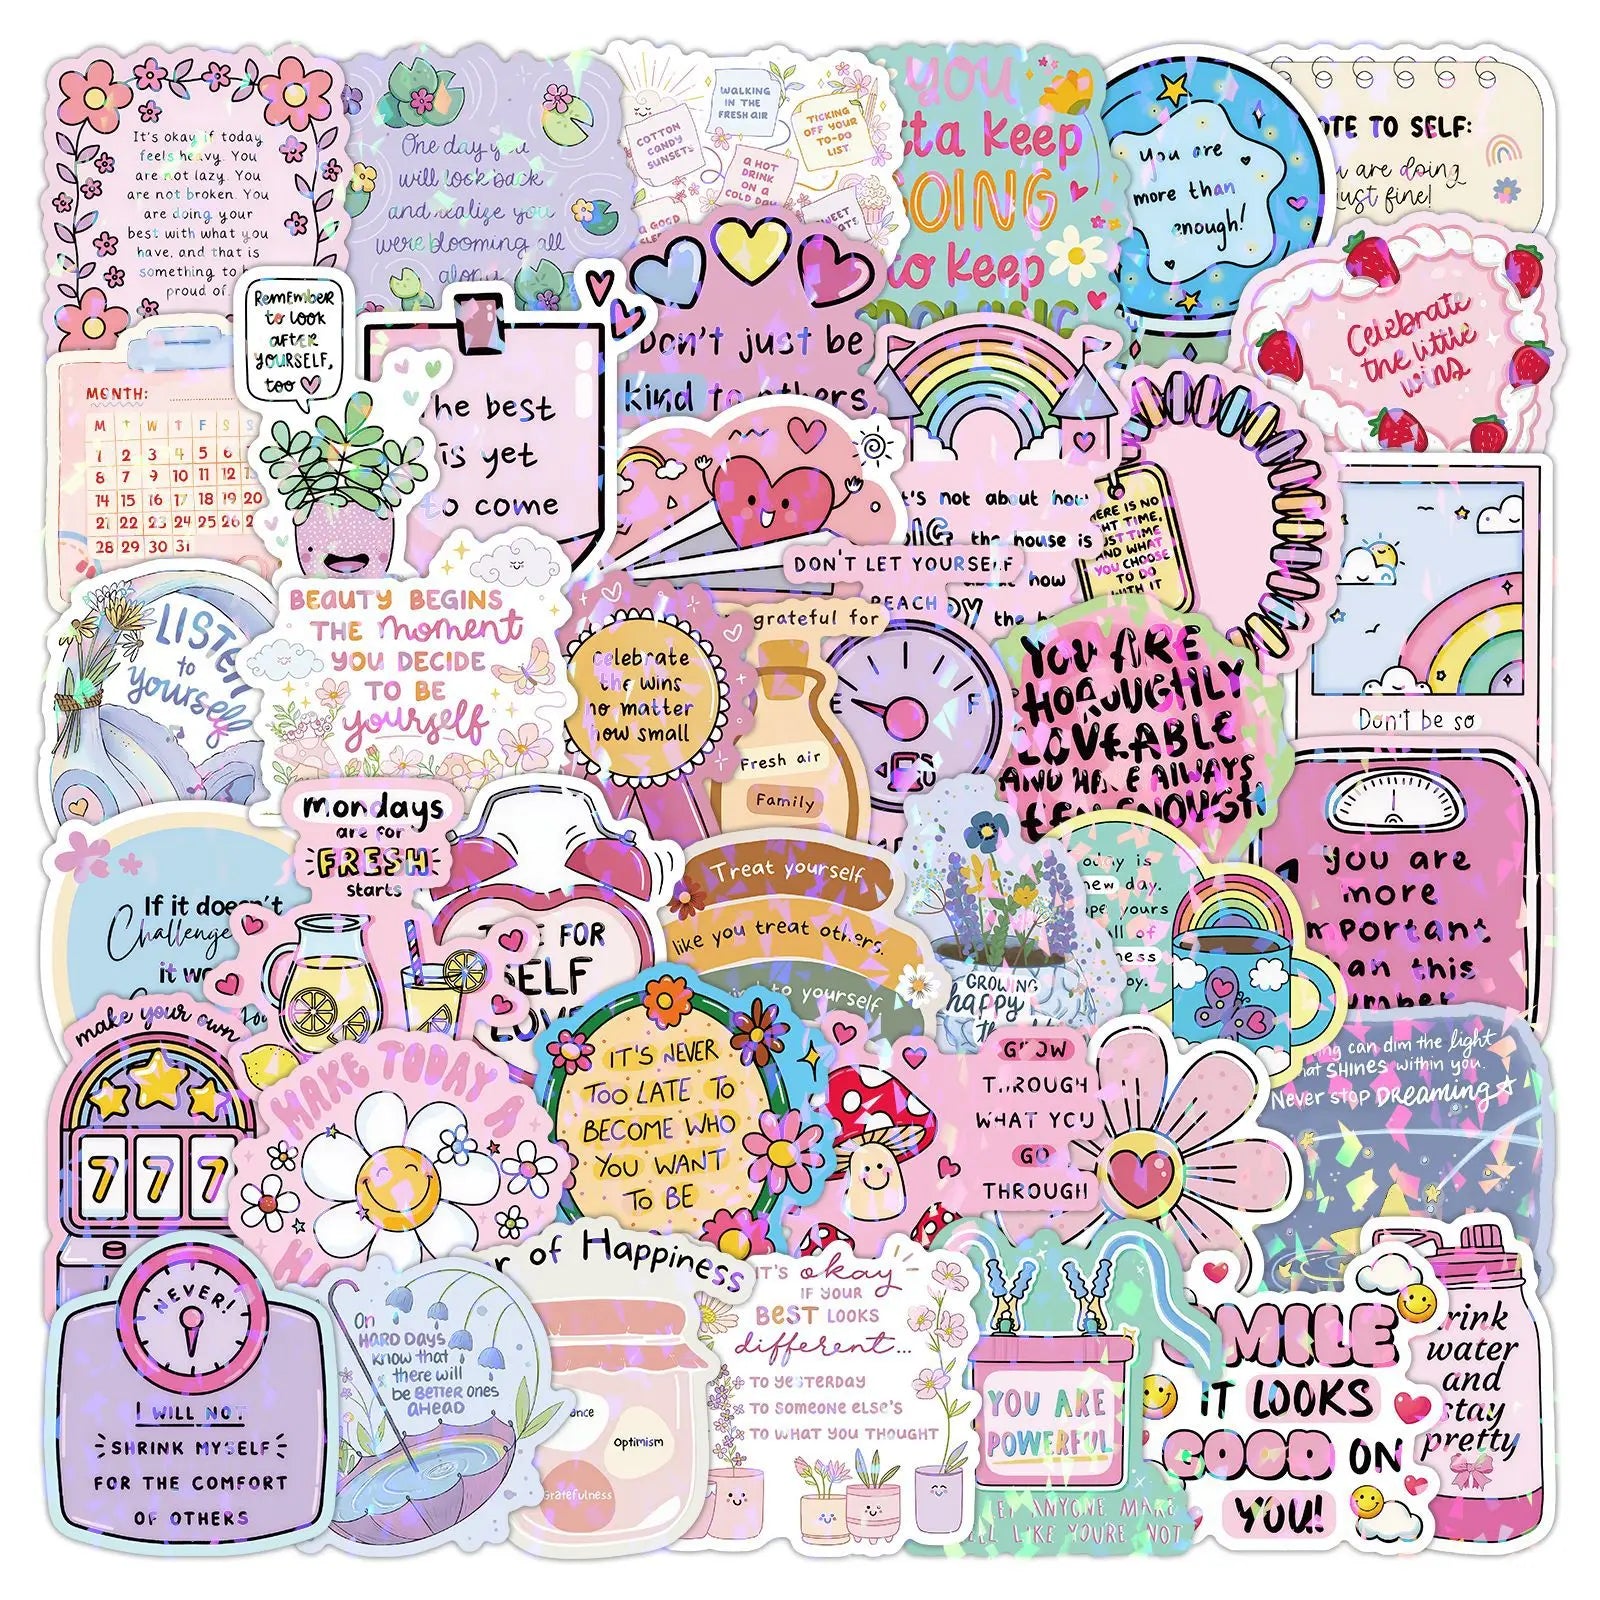 It's okay if today
feels heavy. You
are not lazy. You
are not broken. You
are doing your
best with what you
have, and that is
something to
proud of.
One day you
will look back
and realize you
were blooming all
along
COTTON
CANDY
SUNSETS
WALKING
IN THE
FRESH AIR
TICKING
OFF YOUR
TO-DO
LIST
A HOT
DRINK
ON A
COLD DAY
A GOOD
SWEET
YOU
Keep
GOING
to Keep
GROWING
You are
more than
enough!
TO SELF:
are doing
just fine!
Celebrate
the little
wins
REMEMBER
to LOOK
AFTER
YOURSELF,
too
MONTH:
M T W T F S S
1 2 3 4 5 6
8 7 9 10 11 12
14 15 16 17 18 19 20
21 22 23 24 25 26
28 29 30 31
The best
is yet
to come
Don't just be
kind to others,
DON'T LET YOURSELF
REACH
E F
it's not about how
BIG the house is
how
the
THERE IS NO
TIME,
JUST TIME
AND WHAT
YOU CHOOSE
TO DO
WITH IT
Don't be so
LISTEN
to
yourself
BEAUTY BEGINS
THE moment
YOU DECIDE
TO BE
yourself
Celebrate
the wins
no matter
how small
grateful for
Fresh air
Family
YOU ARE
THOROUGHLY
LOVEABLE
AND HAVE ALWAYS
BEEN ENOUGH
you are
more
important
than this
number
If it doesn't
Challenge
it
mondays
are for
FRESH
starts
TIME FOR
SELF
LOVE
Treat yourself
like you treat others.
to yourself
GROWING
happy
today is
new day.
yours
of
make your own
777
MAKE TODAY A
IT'S NEVER
TOO LATE TO
BECOME WHO
YOU WANT
TO BE
GROW
THROUGH
WHAT YOU
GO
THROUGH
can dim the light
that SHINES within you.
Never stop DREAMING
NEVER!
I WILL NOT
SHRINK MYSELF
FOR THE COMFORT
OF OTHERS
On
HARD DAYS
know that
there will
be BETTER ones
AHEAD
of Happiness
Optimism
Gratefulness
IT'S okay
IF YOUR
BEST LOOKS
different...
TO YESTERDAY
TO SOMEONE ELSE'S
TO WHAT YOU THOUGHT
YOU ARE
POWERFUL
LET ANYONE MAKE
LIKE YOU'RE NOT
SMILE
IT LOOKS
GOOD ON
YOU!
Drink
water
and
stay
pretty